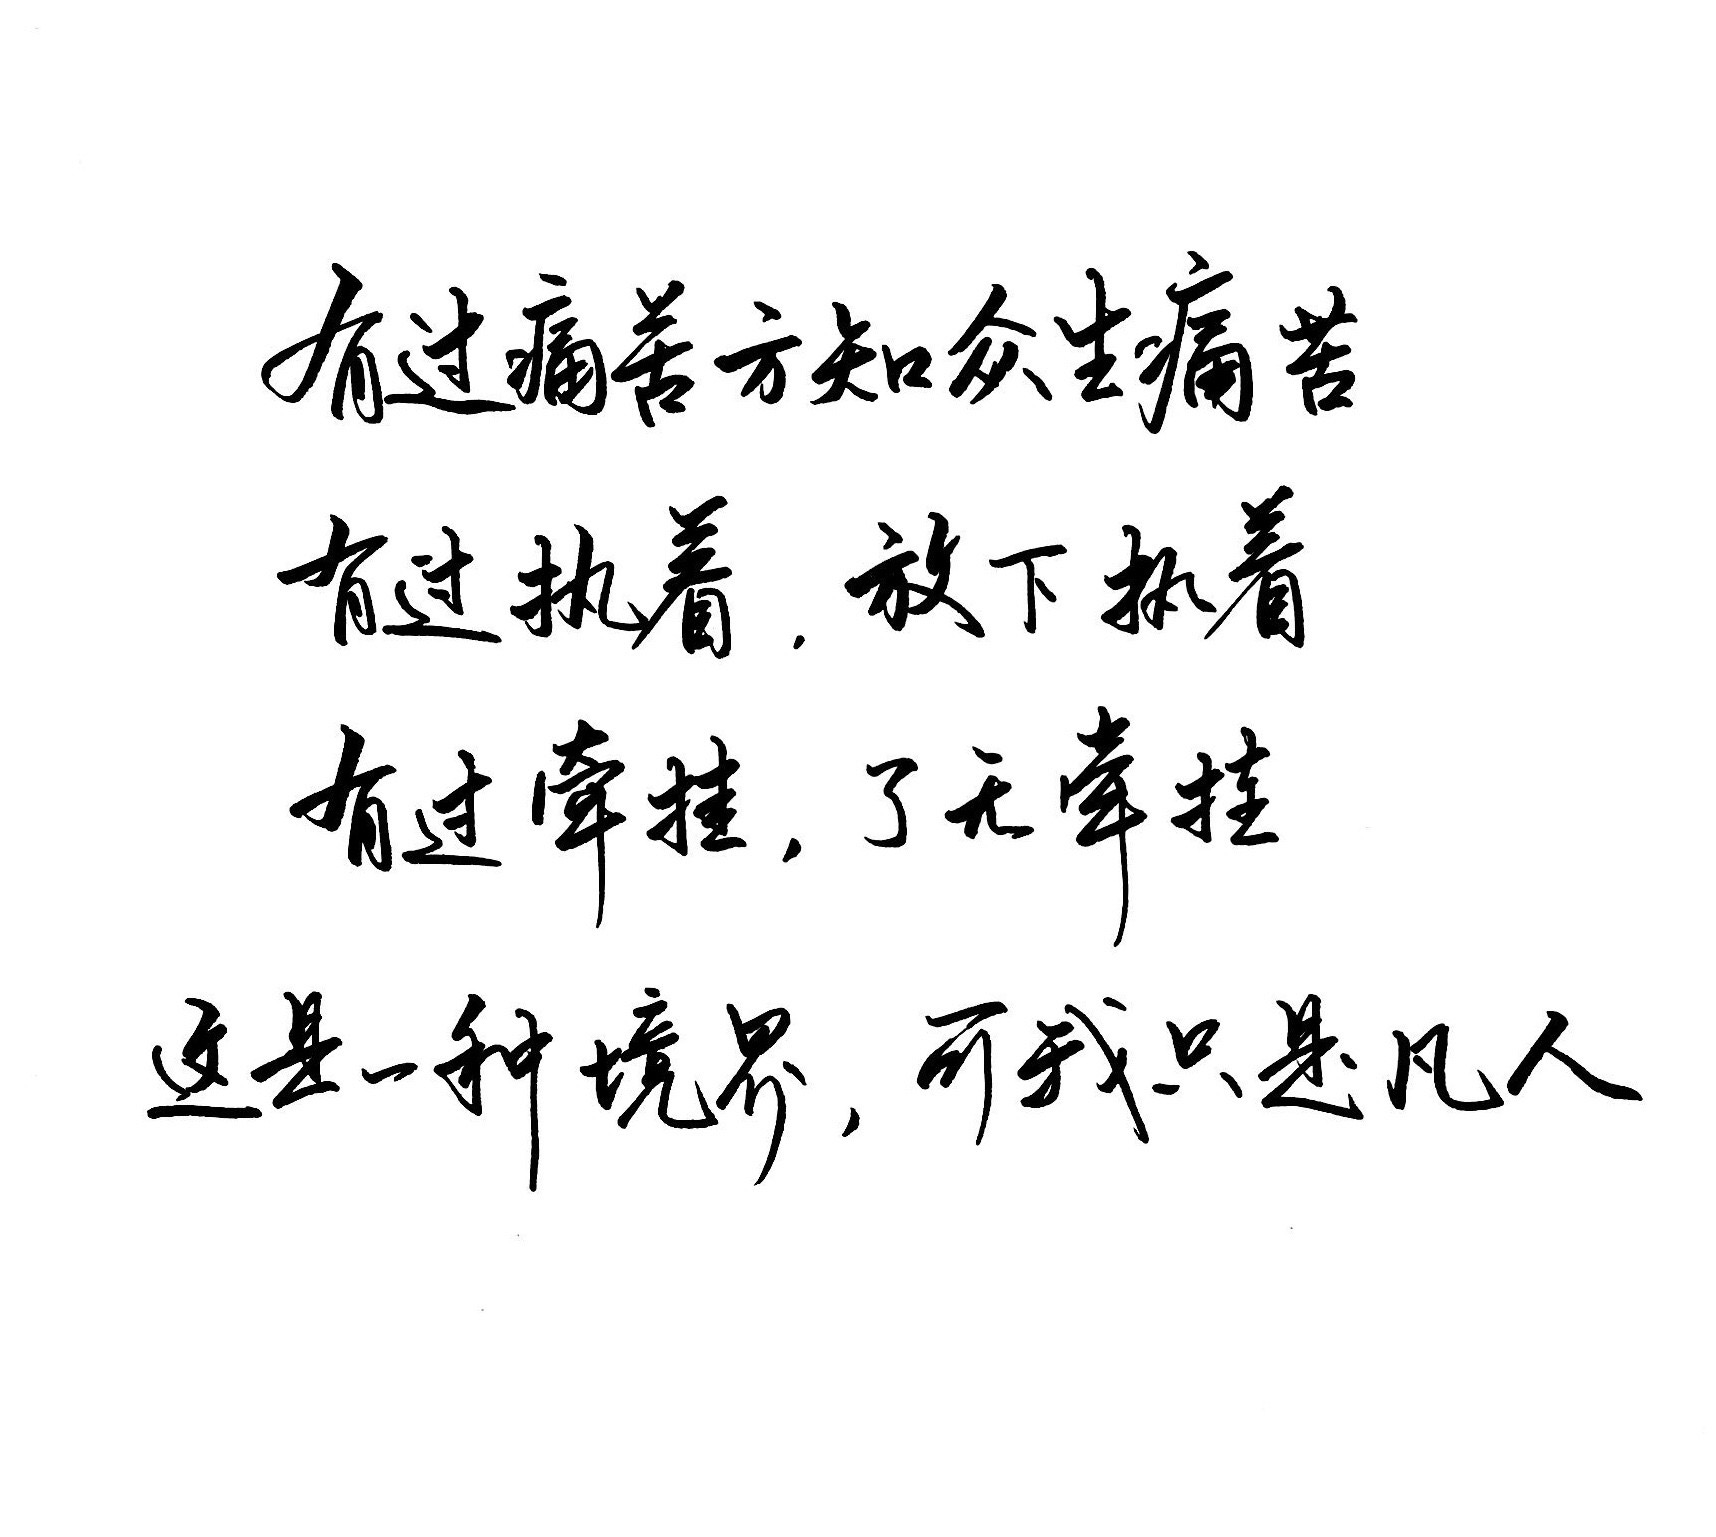 有过痛苦方知众生痛苦
有过执着，放下执着
有过牵挂，了无牵挂
这是一种境界，可我只是凡人